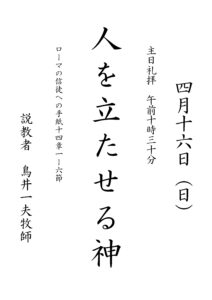 四月十六日（日）
主日礼拝　午前十時三十分
人を立たせる神
ローマの信徒への手紙十四章一ー六節
説教者　鳥井一夫牧師